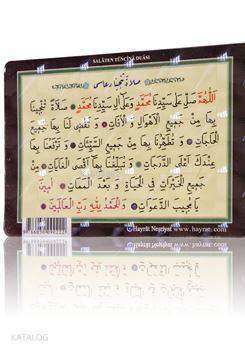 SALÂTEN TÜNCÎNÂ DUÂSI
اَللّٰهُمَّ صَلِّ عَلٰى سَيِّدِنَا مُحَمَّدٍ وَعَلٰى اٰلِ سَيِّدِنَا مُحَمَّدٍ صَلَاةً تُنْجِينَا
بِهَا مِنْ جَمِيعِ الْاَهْوَالِ وَ الْاٰفَاتِ وَ تَقْضِى لَنَا بِهَا جَمِيعَ
الْحَاجَاتِ وَ تُطَهِّرُنَا بِهَا مِنْ جَمِيعِ السَّيِّئَاتِ وَ تَرْفَعُنَا بِهَا
عِنْدَكَ اَعْلَى الدَّرَجَاتِ وَ تُبَلِّغُنَا بِهَا اَقْصَى الْغَايَاتِ مِنْ
جَمِيعِ الْخَيْرَاتِ فِى الْحَيَاةِ وَ بَعْدَ الْمَمَاتِ اٰمِينَ
يَا مُجِيبَ الدَّعَوَاتِ وَ الْحَمْدُ لِلّٰهِ رَبِّ الْعَالَمِينَ
Hayrât Neşriyat www.hayrat.com
KATALOG